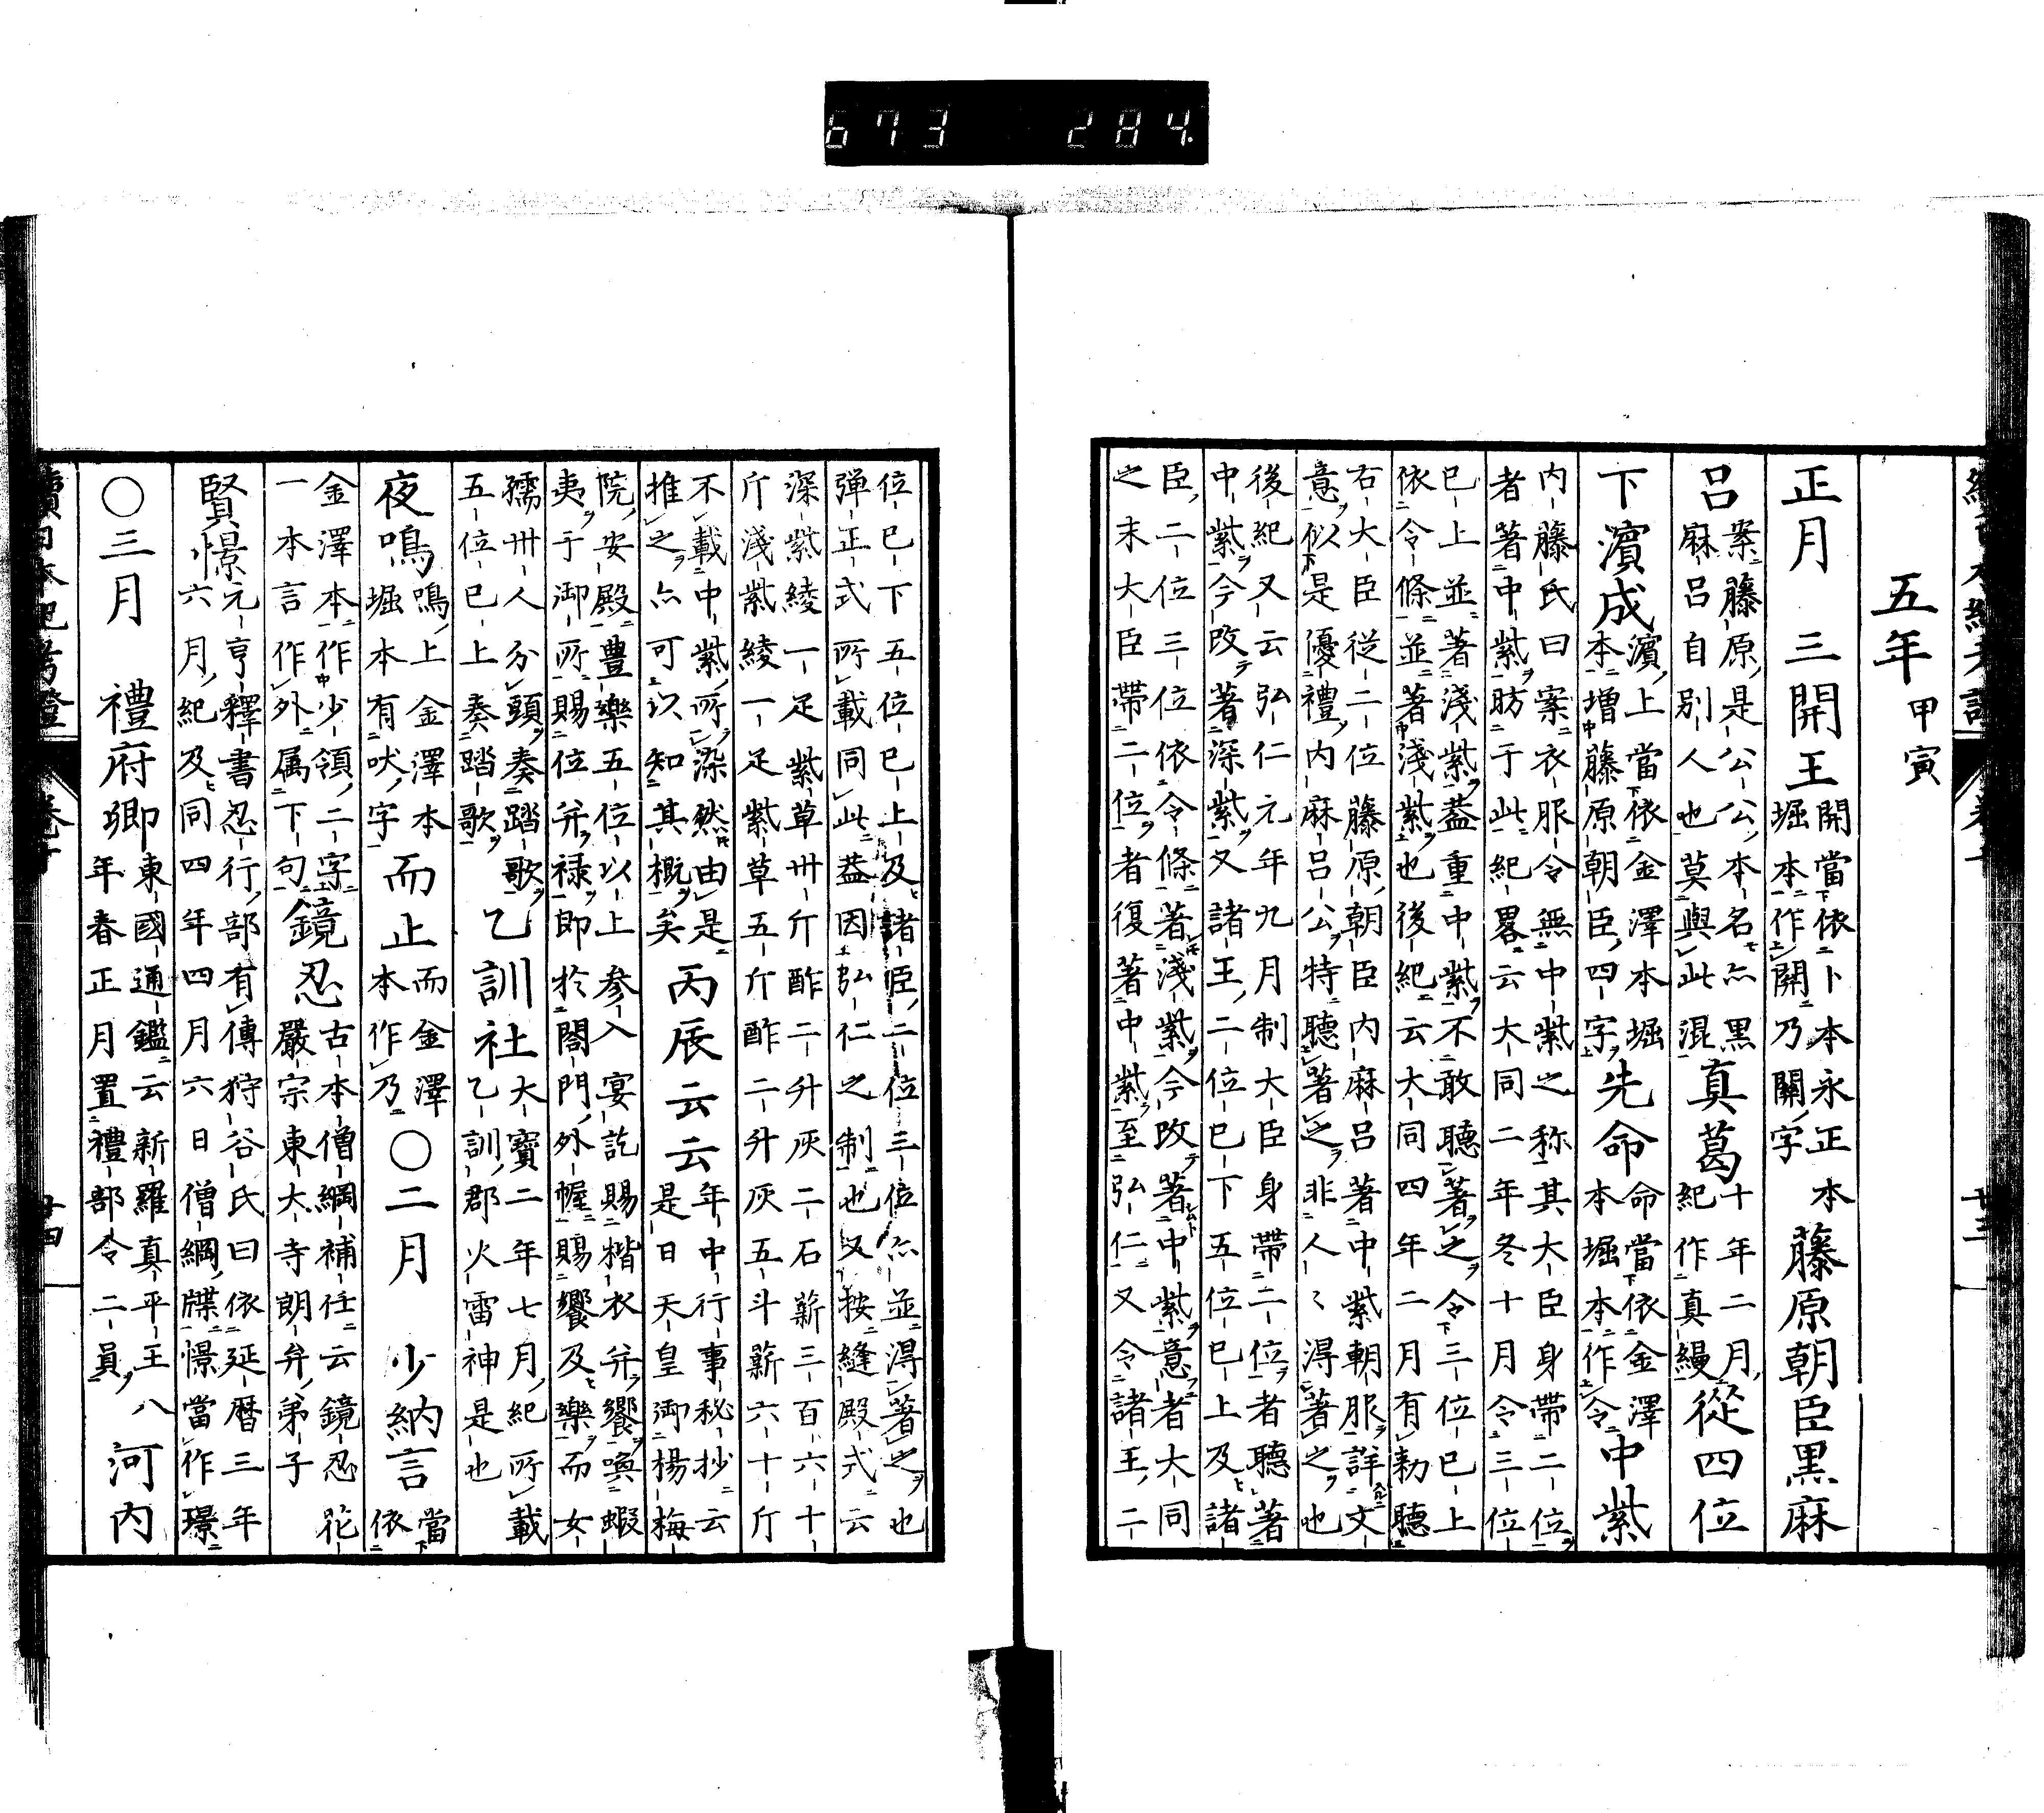 673 284
五年甲寅
正月 三開王開當依卜本永正本堀本作關乃關字藤原朝臣黑麻
呂案藤原是公公本名亦黑麻呂自別人也莫與此混真葛十年二月紀作真縵從四位
下濱成濱上當依金澤本堀本增藤原朝臣四字先命命當依金澤本堀本作令中紫
内藤氏曰案衣服令無中紫之称其大臣身帶二位者著中紫昉于此紀畧云大同二年冬十月令三位
已上並著淺紫蓋重中紫不敢聽著之令三位已上依令條並著淺紫也後紀云大同四年二月有勅聽
右大臣從二位藤原朝臣内麻呂著中紫朝服詳文意似是優禮内麻呂公特聽著之非人〻得著之也
後紀又云弘仁元年九月制大臣身帶二位者聽著中紫今改著深紫又諸王二位已下五位已上及諸
臣二位三位依令條著淺紫今改著中紫意者大同之末大臣帶二位者復著中紫至弘仁又令諸王二
位已下五位已上及諸臣二位三位亦並得著之也弾正式所載同此蓋因弘仁之制也又按縫殿式云
深紫綾一疋紫草卅斤酢二升灰二石薪三百六十斤淺紫綾一疋紫草五斤酢二升灰五斗薪六十斤
不載中紫所染然由是推之亦可以知其概矣丙辰云云年中行事秘抄云是日天皇御楊梅
院安殿豊樂五位以上参入宴訖賜楷衣并饗喚蝦夷于御所賜位并禄即於閤門外幄賜饗及樂而女
孺卅人分頭奏踏歌五位已上奏踏歌乙訓社大寶二年七月紀所載乙訓郡火雷神是也
夜鳴鳴上金澤本堀本有吠字而止而金澤本作乃〇二月 少納言當依
金澤本作少領二字一本言作外属下句鏡忍古本僧綱補任云鏡忍花嚴宗東大寺朗弁弟子
賢憬元亨釋書忍行部有傳狩谷氏曰依延暦三年六月紀及同四年四月六日僧綱牒憬當作璟
〇三月 禮府卿東國通鑑云新羅真平王八年春正月置禮部令二員河内